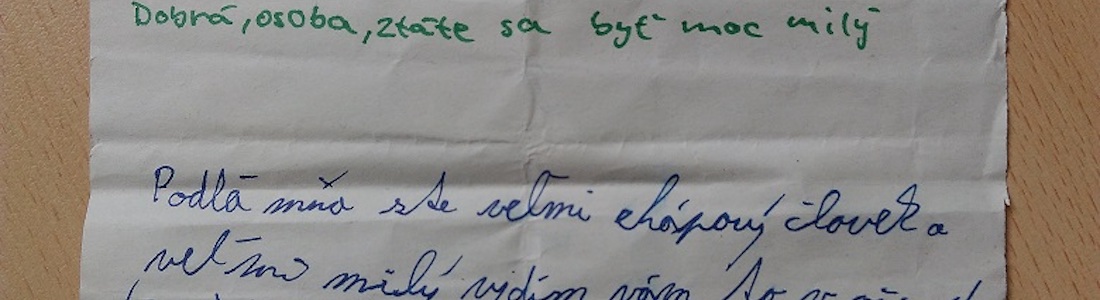 Dobrá, osoba, ztáte sa byť moc milý
Podlā mňa ste veľmi chápavý človek a
veľmi milý vidím vám to v